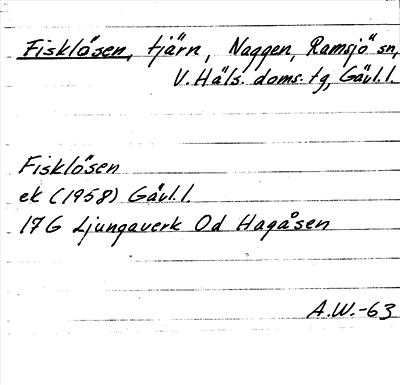 Fisklösen, tjärn, Naggen, Ramsjö sn,
V. Häls. doms. tg, Gävl. l.
Fisklösen
ek (1958) Gävl. l.
17G Ljungaverk 0d Hagåsen
A.W.-63